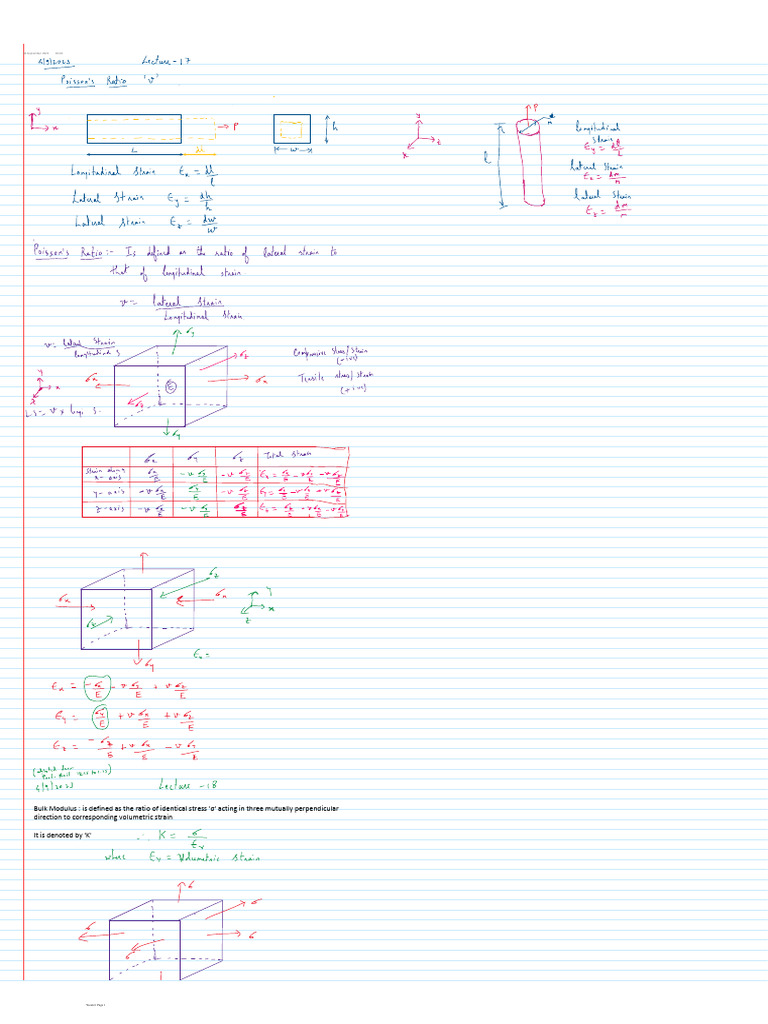 4/9/2023 Lecture-17
Poisson's Ratio 'ν'
y
x
P
L
dl
h
w
y
z
x
P
l
Longitudinal Strain
Ey = dl/L
lateral Strain
lateral Strain
Longitudinal Strain Ex = dl/l
Lateral Strain Ey = dh/h
Lateral Strain Ez = dw/w
Poisson's Ratio:- Is defined as the ratio of lateral strain to
that of longitudinal strain.
ν = lateral Strain / Longitudinal Strain
ν = lateral Strain / Longitudinal S
σy
σz
σx
σx
σz
σy
E
Compressive Stress/Strain
(-ive)
Tensile stress/strain
(+ive)
y
x
L.S = ν × long. S.
σx σy σz Total Strain
Strain along x-axis σx/E -ν σy/E -ν σz/E Ex = σx/E - ν σy/E - ν σz/E
y-axis -ν σx/E σy/E -ν σz/E
z-axis -ν σx/E -ν σy/E σz/E
σz
σx
σx
σz
y
x
z
σy
Ex =
Ex = -σx/E - ν σy/E + ν σz/E
Ey = σy/E + ν σx/E + ν σz/E
Ez = -σz/E + ν σx/E - ν σy/E
4/9/2023 Lecture-18
Bulk Modulus : is defined as the ratio of identical stress 'σ' acting in three mutually perpendicular
direction to corresponding volumetric strain
It is denoted by 'K' ∴ K = σ/Ev
where Ev = Volumetric Strain
σ
σ
σ
σ
σ